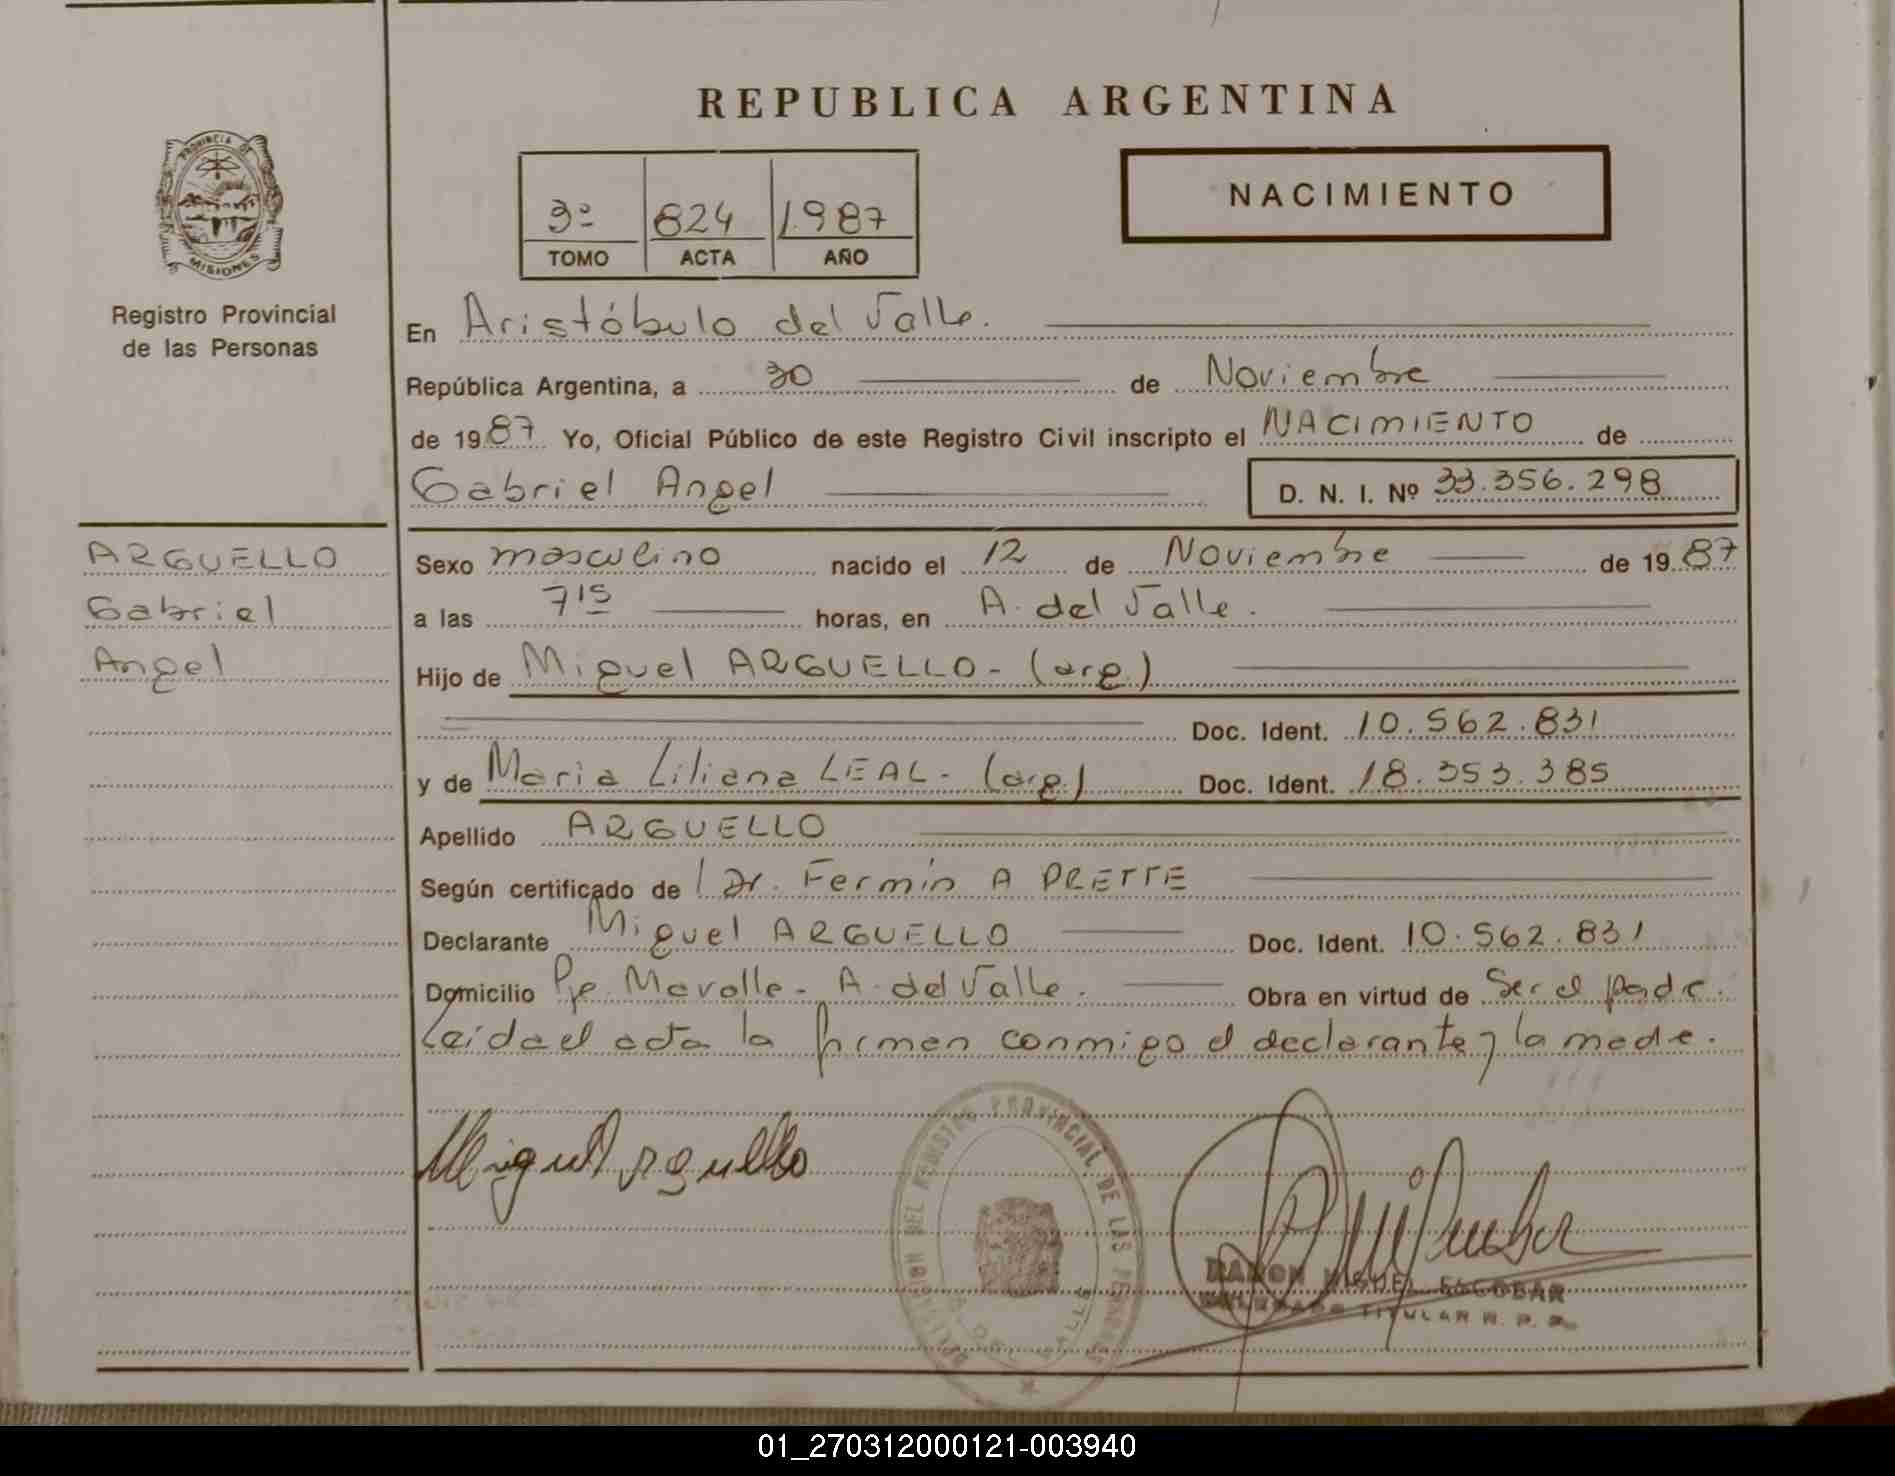 REPUBLICA ARGENTINA
PROVINCIA DE MISIONES
Registro Provincial
de las Personas
3º 824 1.987
TOMO ACTA AÑO
NACIMIENTO
En Aristóbulo del Valle.
República Argentina, a 30 de Noviembre
de 1987 Yo, Oficial Público de este Registro Civil inscripto el NACIMIENTO de
Gabriel Angel D. N. I. Nº 33.356.298
ARGUELLO
Gabriel
Angel
Sexo masculino nacido el 12 de Noviembre de 1987
a las 7 15 horas, en A. del Valle.
Hijo de Miguel ARGUELLO - (arg.)
Doc. Ident. 10.562.831
y de Maria Liliana LEAL - (arg.) Doc. Ident. 18.353.385
Apellido ARGUELLO
Según certificado de Dr. Fermin A PRETTE
Declarante Miguel ARGUELLO Doc. Ident. 10.562.831
Domicilio Pje. Mavalle - A. del Valle. Obra en virtud de Ser el padre.
Leida el acta la firman conmigo el declarante y la madre.
Miguel Arguello
DELEGACION DEL REGISTRO PROVINCIAL DE LAS PERSONAS
A. DEL VALLE
RAMON MIGUEL ESCOBAR
DELEGADO TITULAR R. P. P.
01_270312000121-003940